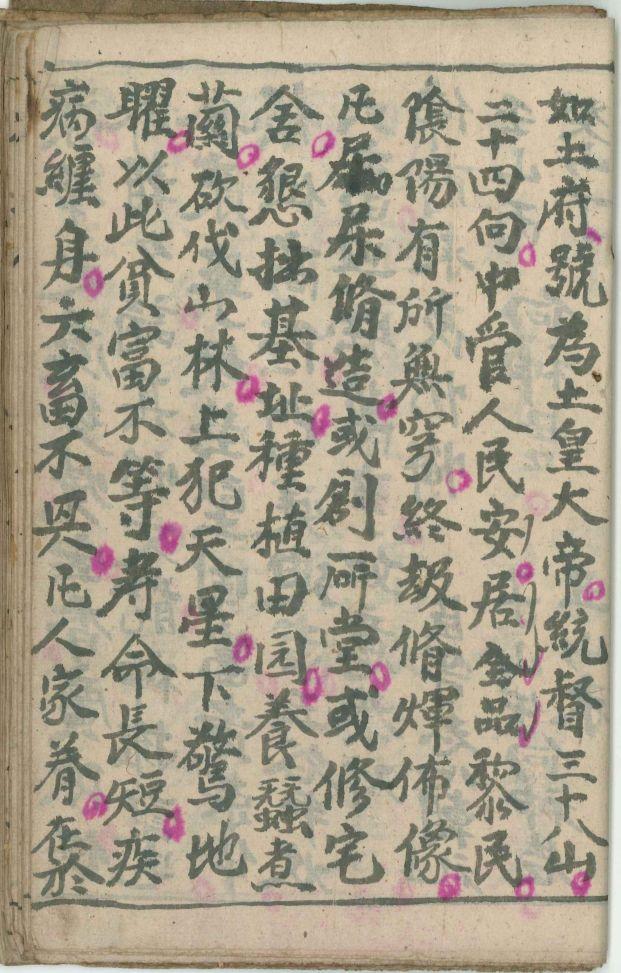 如土府號為土皇大帝統督三十八山
二十四向中管人民安居全品黎民
陰陽有所無穹終劫脩煇佈像
凡尿脩造或創硏堂或修宅
舍懇拙基址種植田园養蠶煮
蘭砍伐山林上犯天星下驚地
曜以此貧富不等寿命長短疾
病纏身六畜不具凡人家眷在於